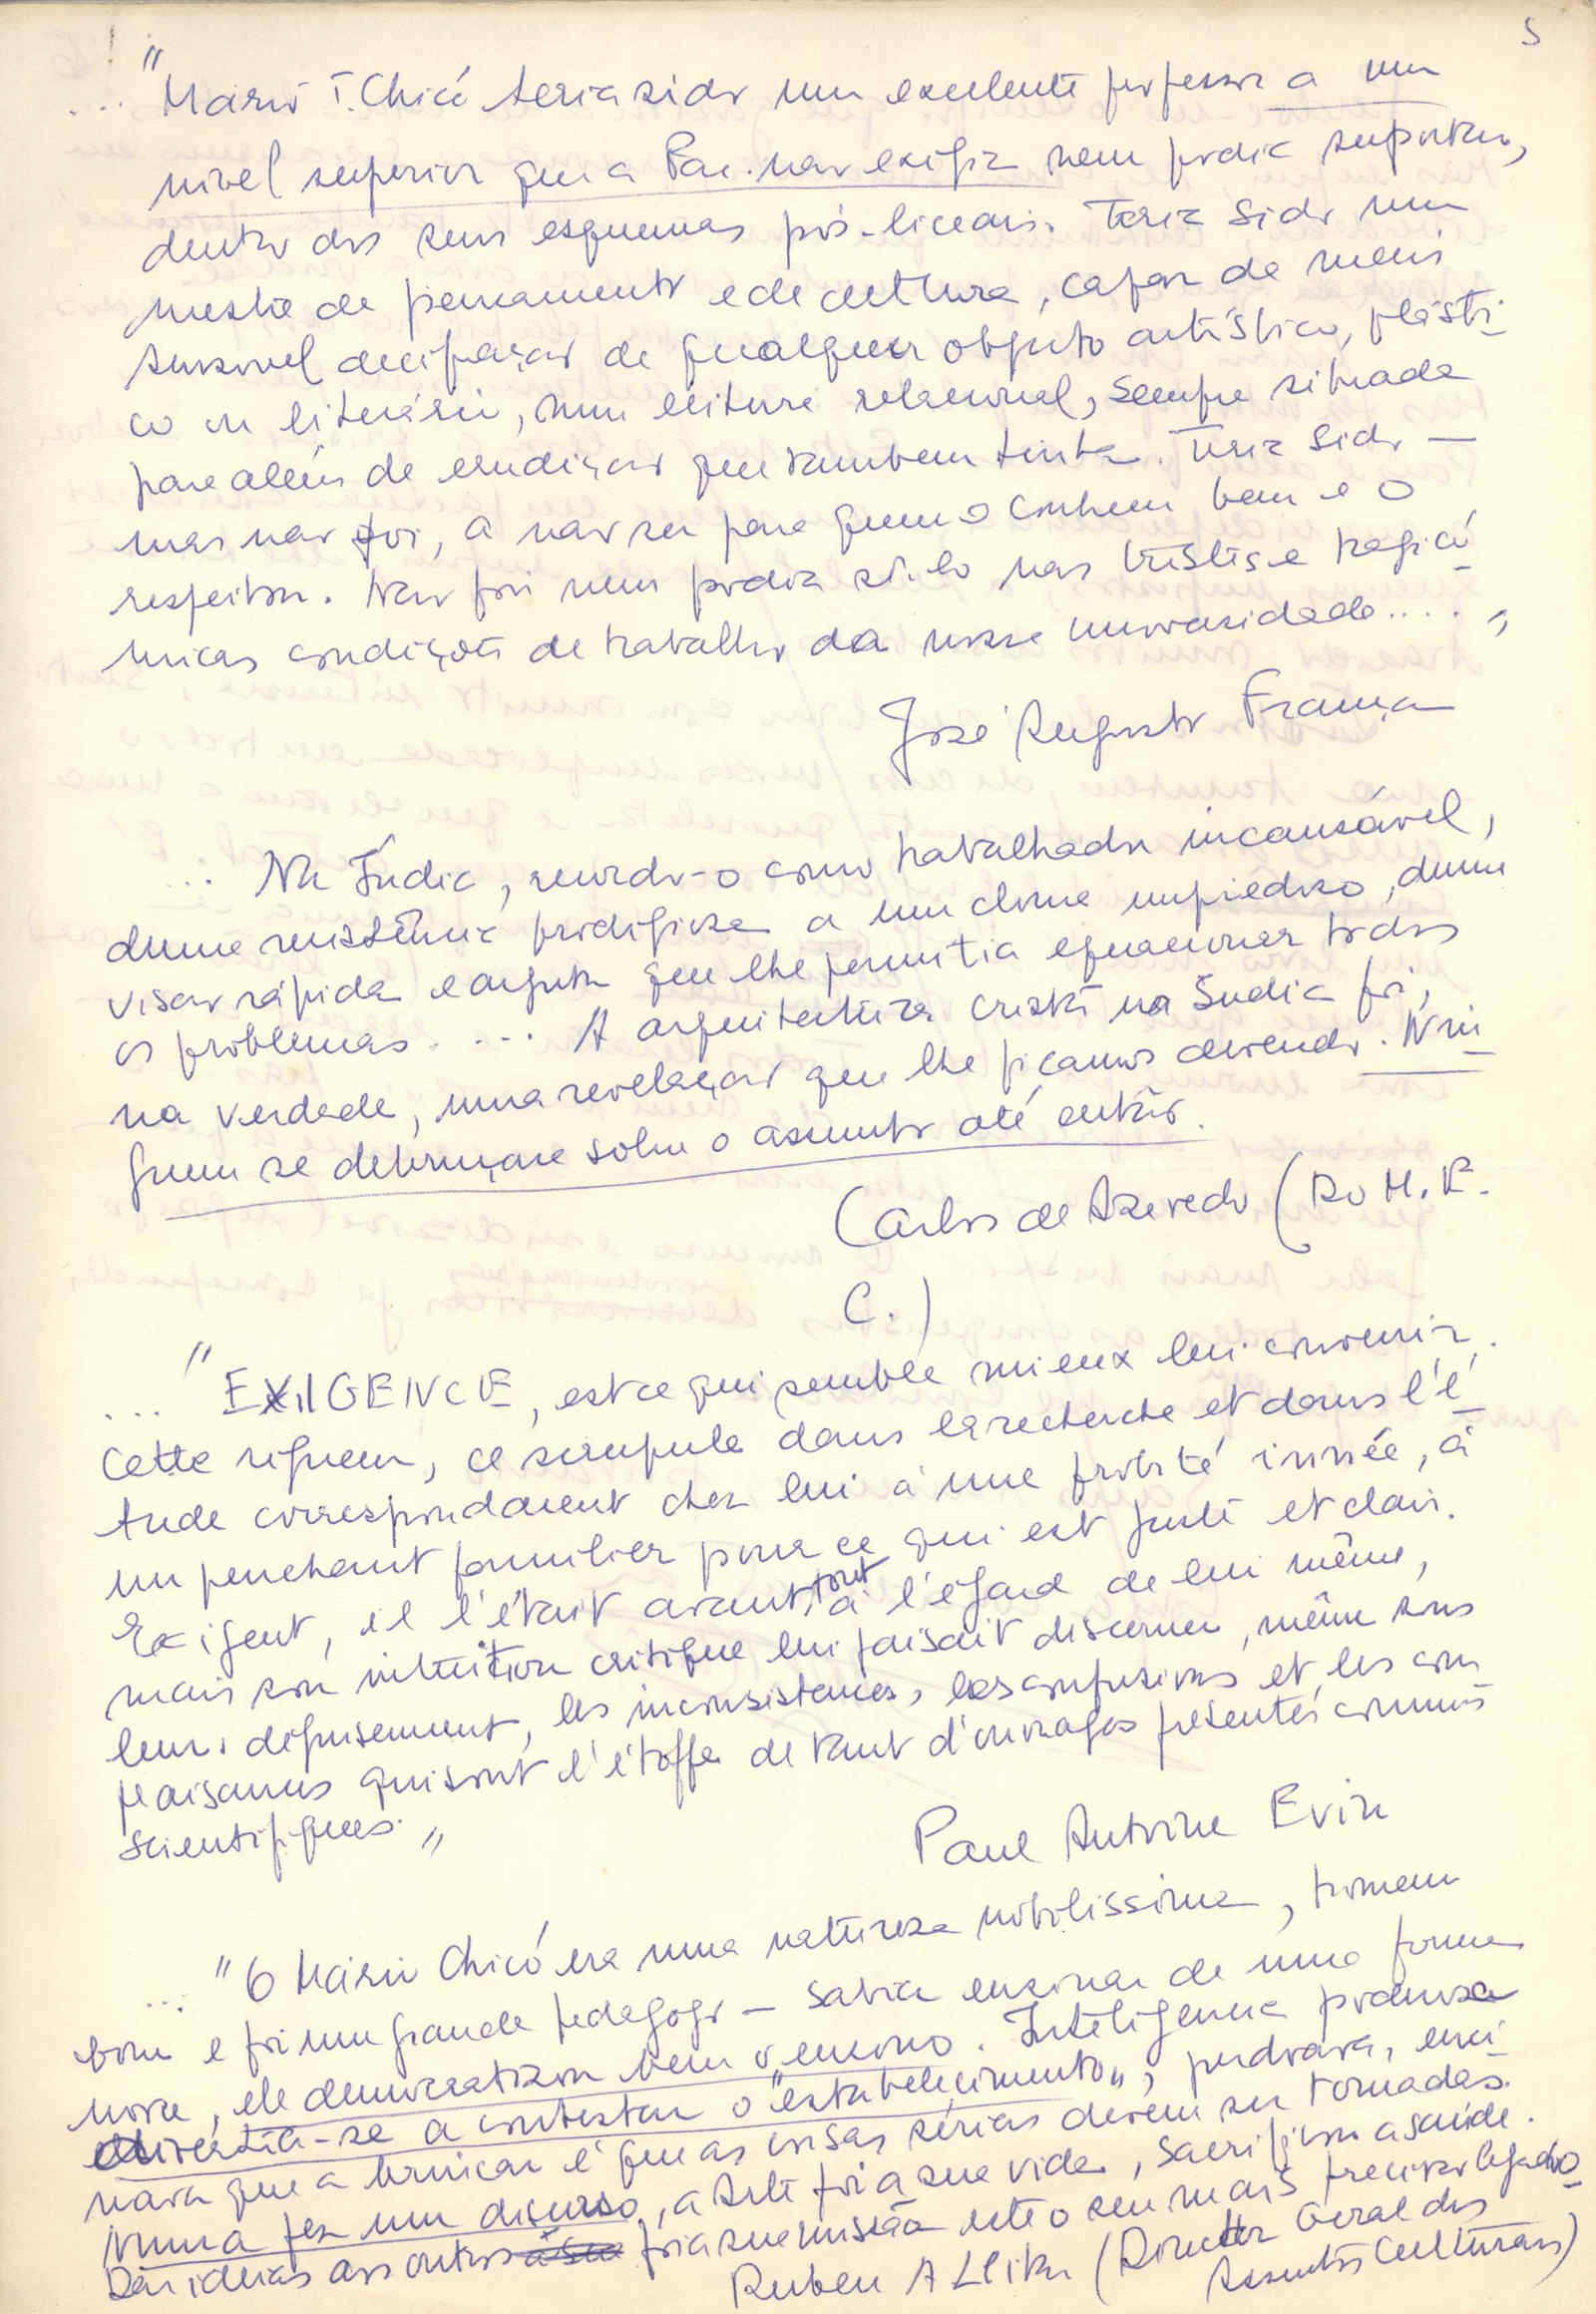 5
... "Mário T. Chicó teria sido um excelente professor a um
nível superior que a Fac. não exigia nem podia suportar,
dentro dos seus esquemas pós-liceais. Teria sido um
mestre de pensamento e de cultura, capaz de mais
sensível decifração de qualquer objecto artístico, plásti-
co ou literário, numa leitura relacional, sempre situada
para além de erudição que também tinha. Teria sido —
mas não foi, a não ser para quem o conheceu bem e o
respeitou. Não foi nem podia sê-lo nas tristes e tragicó-
micas condições de trabalho da nossa universidade.... "
José Augusto França
... Na Índia, recordo-o como trabalhador incansável,
duma resistência prodigiosa a um clima impiedoso, duma
visão rápida e arguta que lhe permitia equacionar todos
os problemas. ... A arquitectura cristã na Índia foi,
na verdade, uma revelação que lhe ficamos devendo. Nin-
guém se debruçara sobre o assunto até então.
Carlos de Azevedo (Do M. E.
C.)
... "EXIGENCE, est ce qui semble mieux lui convenir.
Cette rigueur, ce scrupule dans la recherche et dans l'é-
tude correspondaient chez lui à une probité innée, à
un penchant familier pour ce qui est juste et clair.
Exigent, il l'était avant tout à l'égard de lui même,
mais son intuition critique lui faisait discerner, même sous
leur déguisement, les inconsistences, les confusions et les com
plaisances qui sont l'étoffe de tant d'ouvrages présentés comme
scientifiques. "
Paul Antoine Evin
... "O Mário Chicó era uma natureza nobilíssima, homem
bom e foi um grande pedagogo — sabia ensinar de uma forma
nova, ele democratizou bem o ensino. Inteligencia poderosa
divertia-se a contestar o "estabelecimento", perdoava, ensi-
nava que a brincar é que as coisas sérias devem ser tomadas.
Nunca fez um discurso, a Arte foi a sua vida, sacrificou a saúde.
Dar ideias aos outros foi a sua missão este o seu mais precioso legado
Ruben A Leitão (Director Geral dos
Assuntos Culturais)